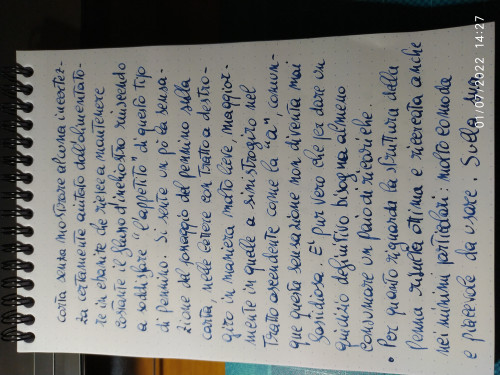 carta senza mostrare alcuna incertez-
za certamente aiutato dall'alimentato-
re in ebanite che riesce a mantenere
costante il flusso d'inchiostro riuscendo
a soddisfare "l'appetito" di questo tipo
di pennino. Si sente un po' la sensa-
zione del passaggio del pennino sulla
carta, nelle lettere con tratto a destro-
giro in maniera molto lieve, maggior-
mente in quelle a sinistrogiro nel
tratto ascendente come la "a", comun-
que questa sensazione non diventa mai
fastidiosa. E' pur vero che per dare un
giudizio definitivo bisogna almeno
consumare un paio di ricariche.
• Per quanto riguarda la struttura della
penna risulta ottima e ricercata anche
nei minimi particolari: molto comoda
e piacevole da usare. Sulla
01/07/2022 14:27